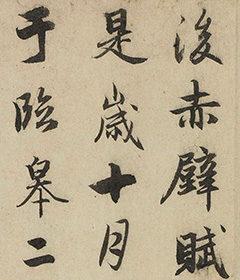 後赤壁賦
是歲十月
于臨皋二